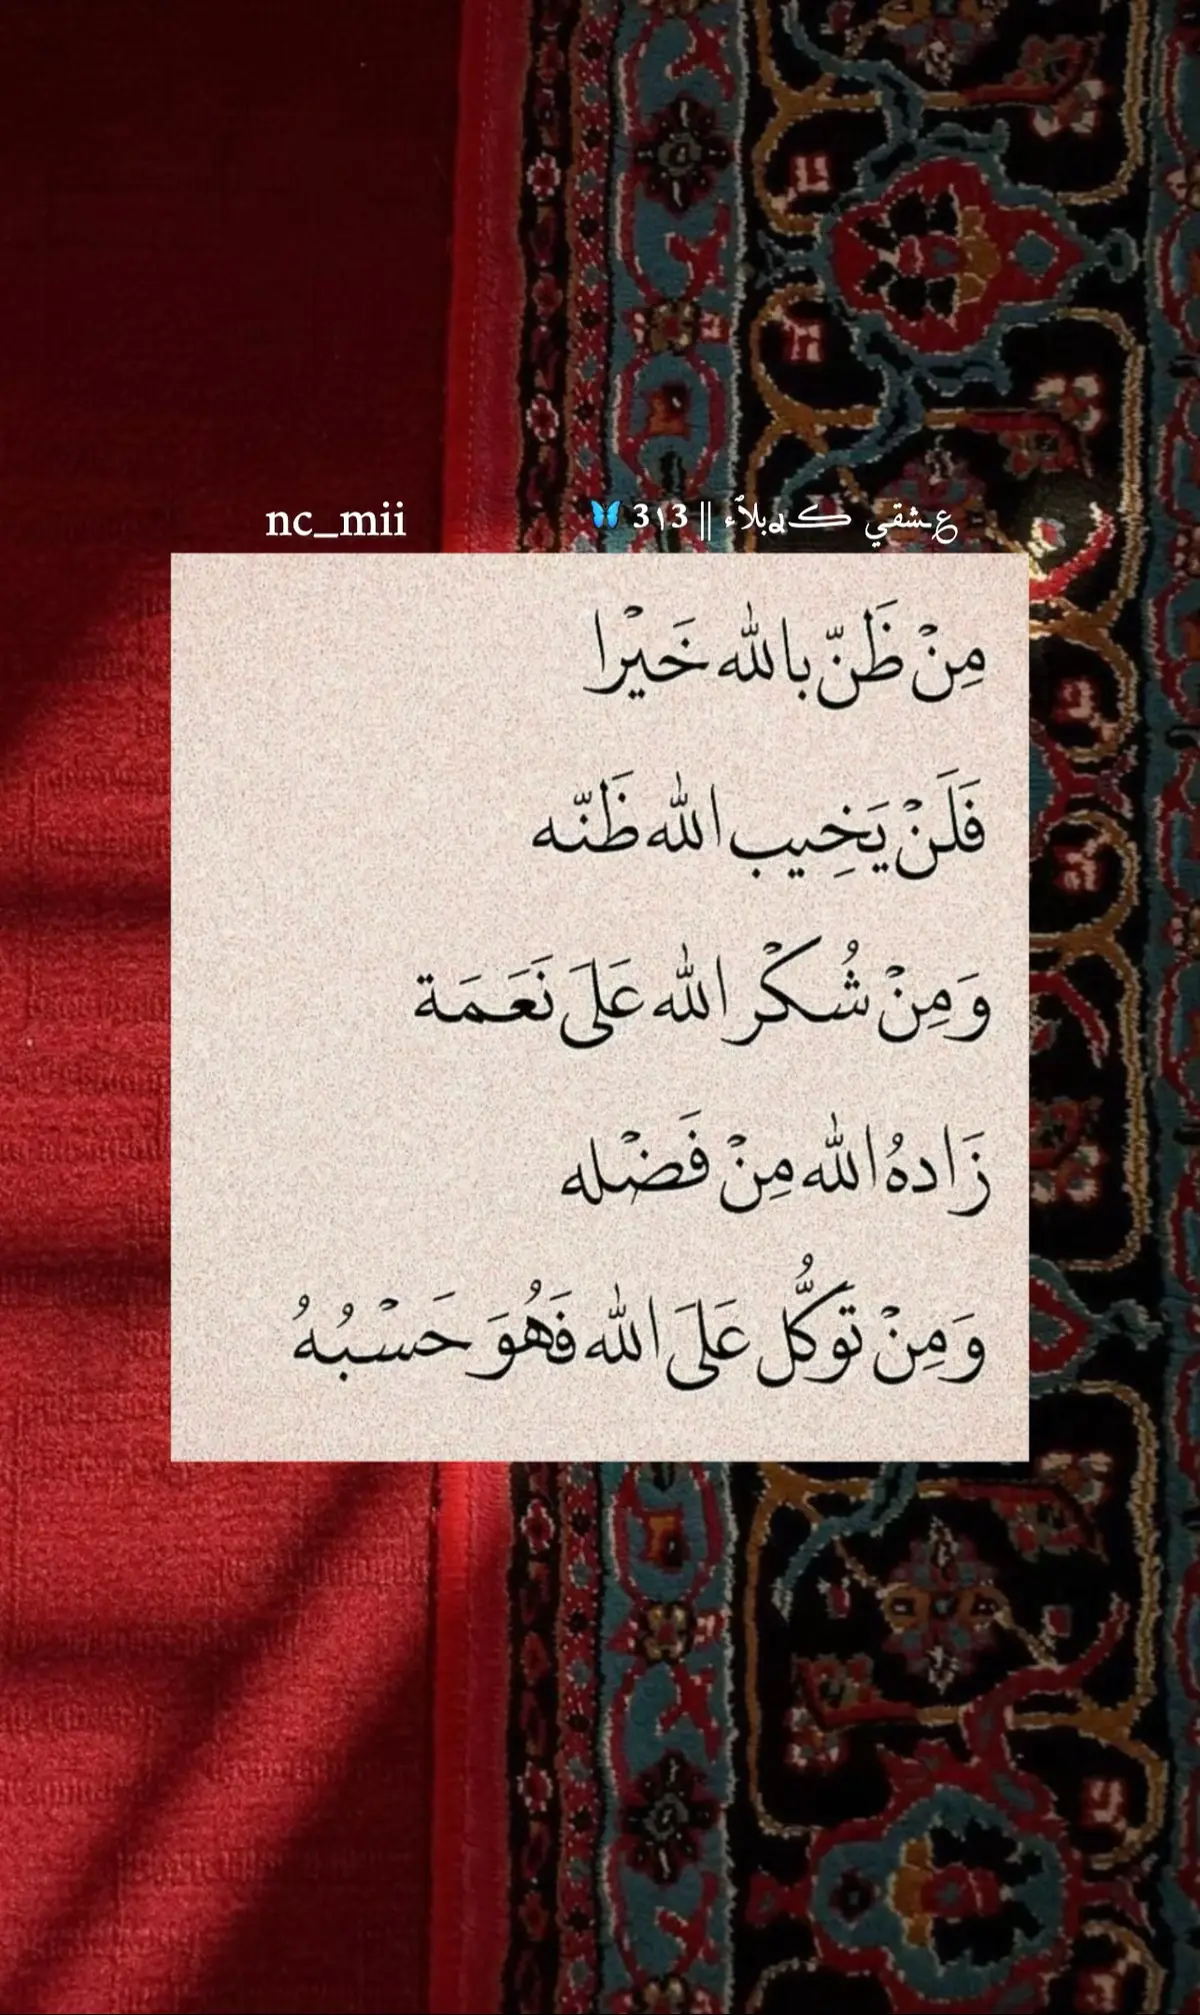 nc_mii
عـشقي کـربلاَء || 3١3 🦋
مِنْ ظَنّ بالله خَيْرا
فَلَنْ يَخِيب الله ظَنّه
وَمِنْ شُكْر الله عَلَى نَعَمَة
زَادهُ الله مِنْ فَضْله
وَمِنْ تَوكُّل عَلَى الله فَهُوَ حَسْبُهُ